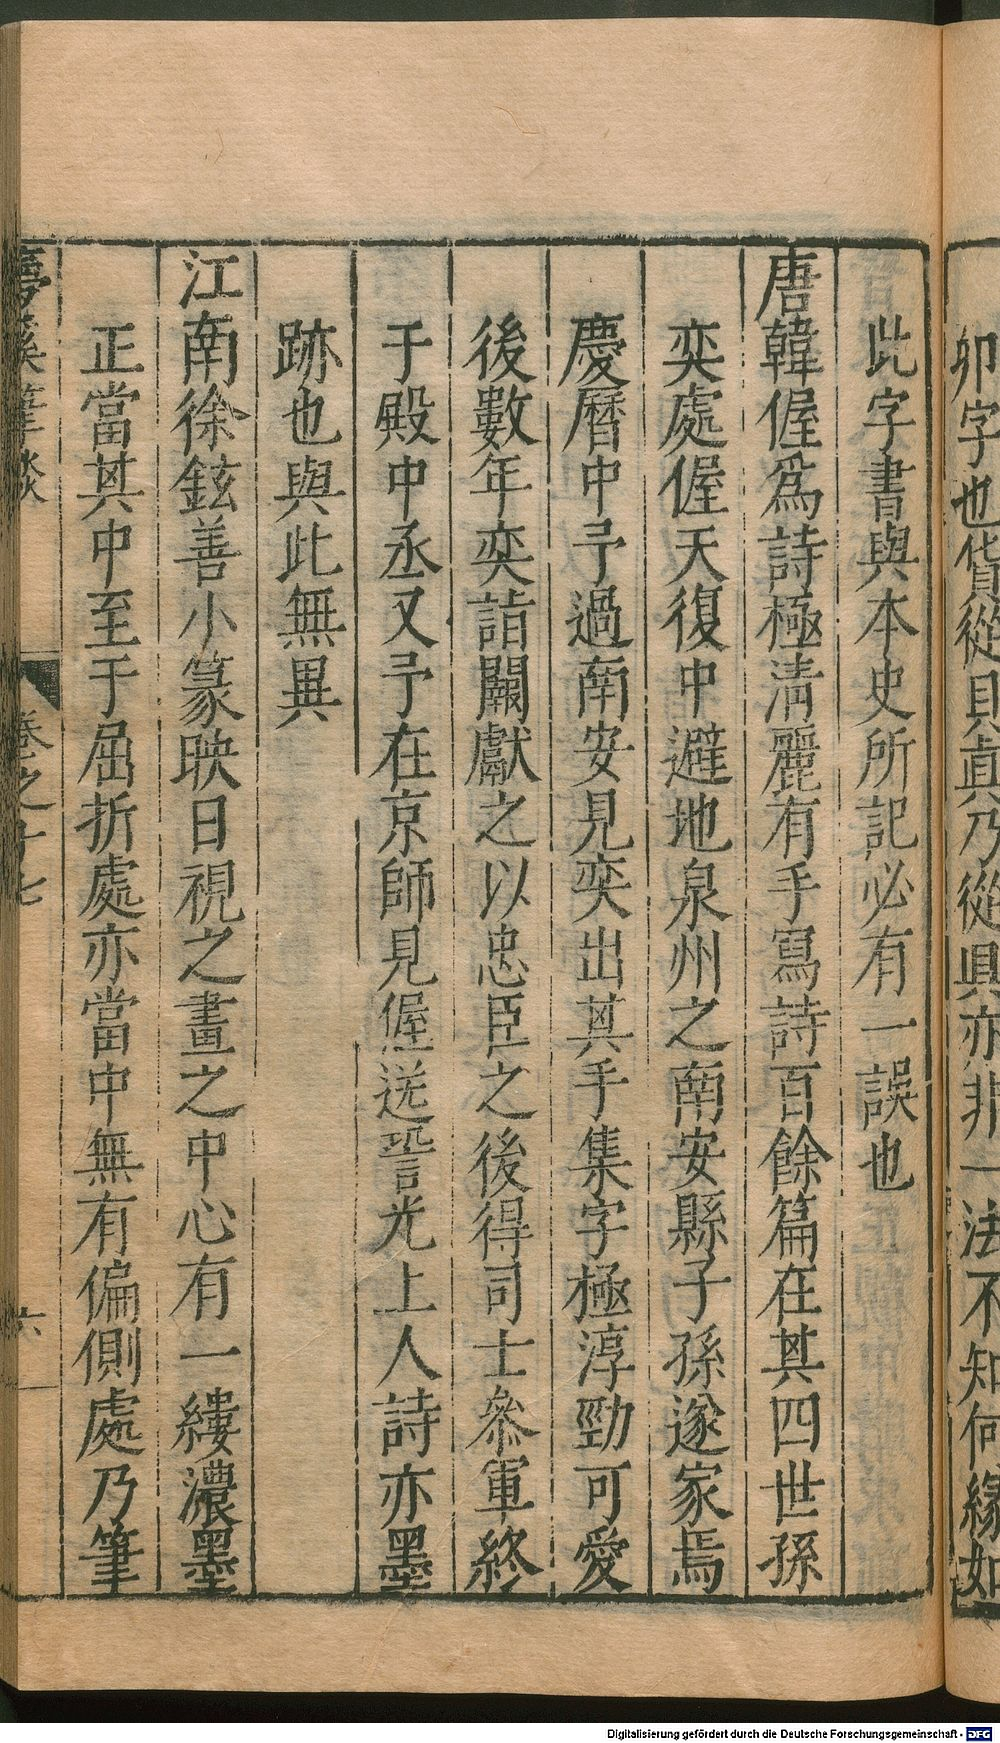 卯字也貨從貝真乃從具亦非一法不知何緣如
此字書與本史所記必有一誤也
唐韓偓爲詩極清麗有手寫詩百餘篇在其四世孫
奕處偓天復中避地泉州之南安縣子孫遂家焉
慶曆中予過南安見奕出其手集字極淳勁可愛
後數年奕詣闕獻之以忠臣之後得司士參軍終
于殿中丞又予在京師見偓送䛒光上人詩亦墨
跡也與此無異
江南徐鉉善小篆映日視之畫之中心有一縷濃墨
正當其中至于屈折處亦當中無有偏側處乃筆
夢溪筆談 卷之十七 六
Digitalisierung gefördert durch die Deutsche Forschungsgemeinschaft - DFG